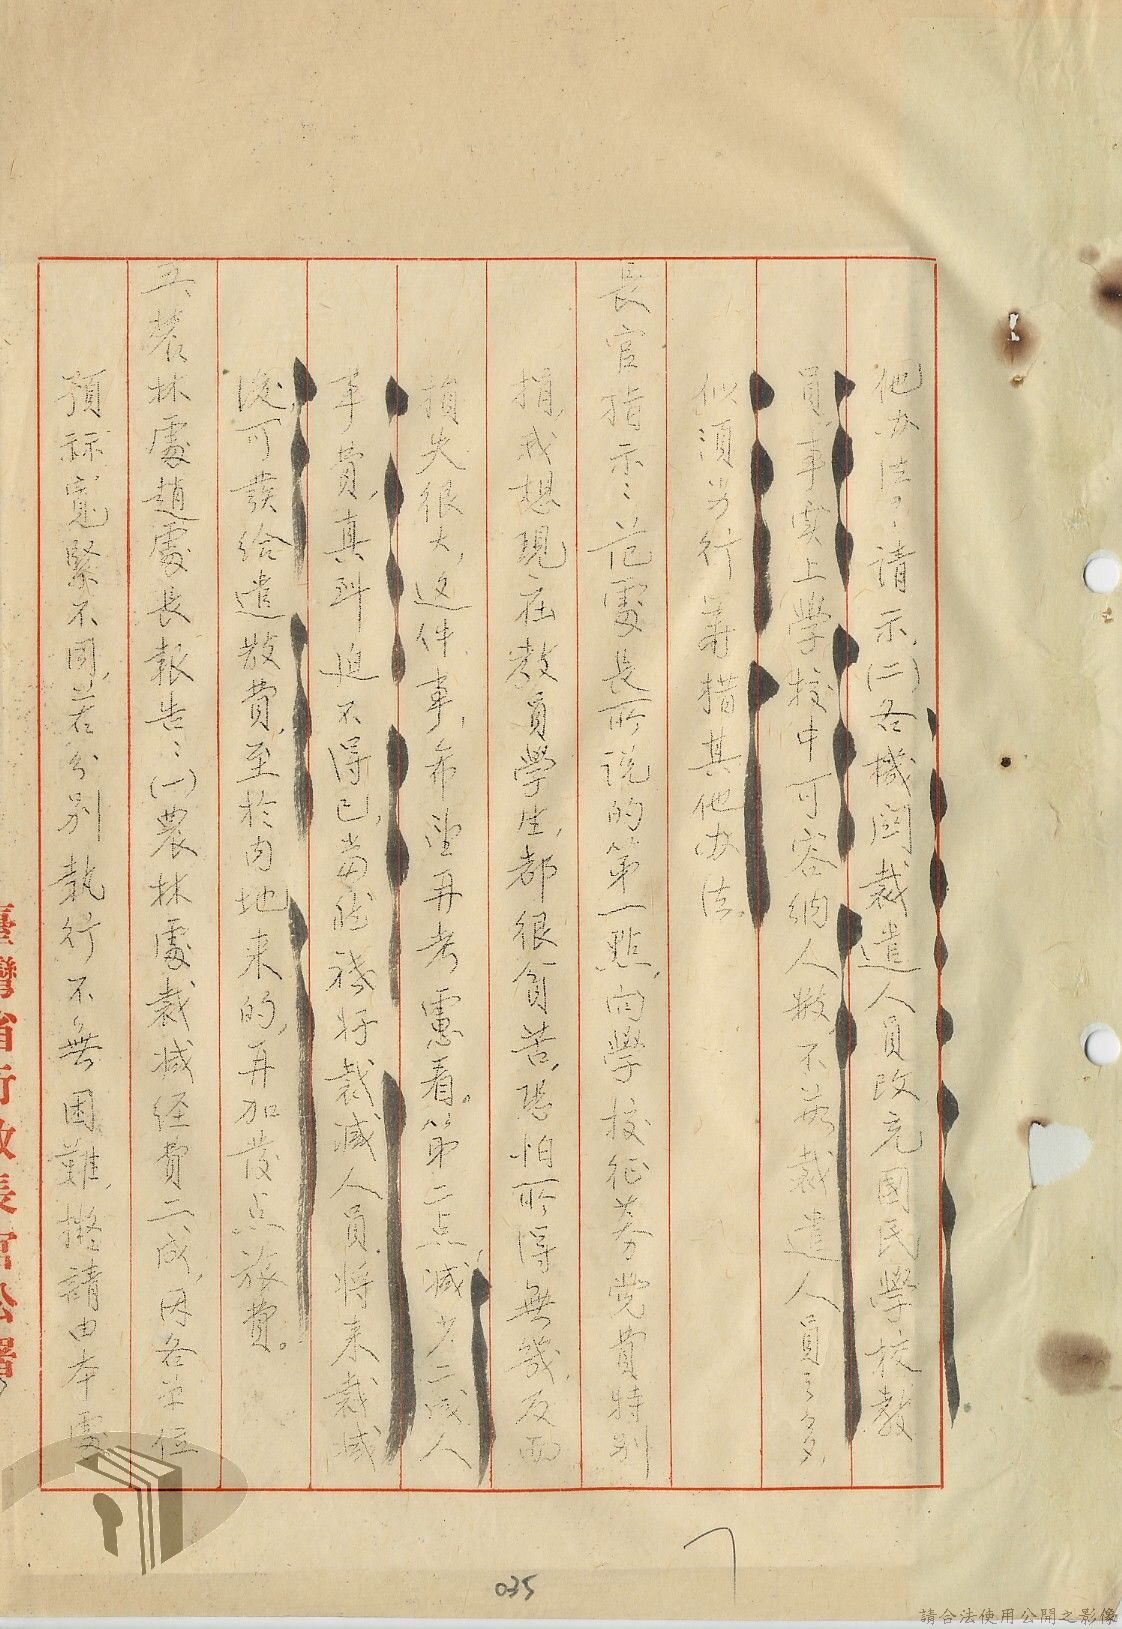 他办法?請示,(二)各機関裁遣人員改充國民學校教
員,事实上學校中可容納人数,不若裁遣人員之多,
似須另行籌措其他办法。
長官指示:范處長所說的第一點,向學校征募党費特別
捐,我想現在教員學生,都很貧苦,恐怕所得無幾,反而
損失很大,这件事,希望再考慮看。第二点减少二成人
事費,真到迫不得已,當然祗好裁減人員,將来裁减
後可發給遣散費,至於内地来的,再加發点旅費。
五、農林處趙處長報告:(一)農林處裁减経費二成,因各单位
預标寬緊不同,若分別執行不無困難,擬請由本處
臺灣省行政長官公署
035
請合法使用公開之影像